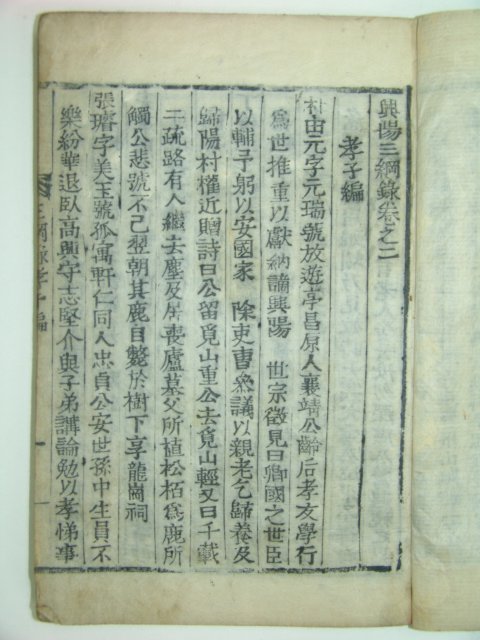 興陽三綱錄卷之二
孝子編
由元字元瑞號放遊亭昌原人襄靖公齡后孝友學行
爲世推重以獻納謫興陽 世宗徵見曰卿國之世臣
以輔予躬以安國家 除吏曹叅議以親老乞歸養及
歸陽村權近贈詩曰公留覓山重公去覓山輕又曰千載
二疏路有人繼去塵及居喪廬墓父所植松栢爲鹿所
觸公悲號不已翌朝其鹿自斃於樹下享龍崗祠
張璿字美玉號孤寓軒仁同人忠貞公安世孫中生員不
樂紛華退臥高興守志堅介與子弟講論勉以孝悌事
三綱錄孝子編